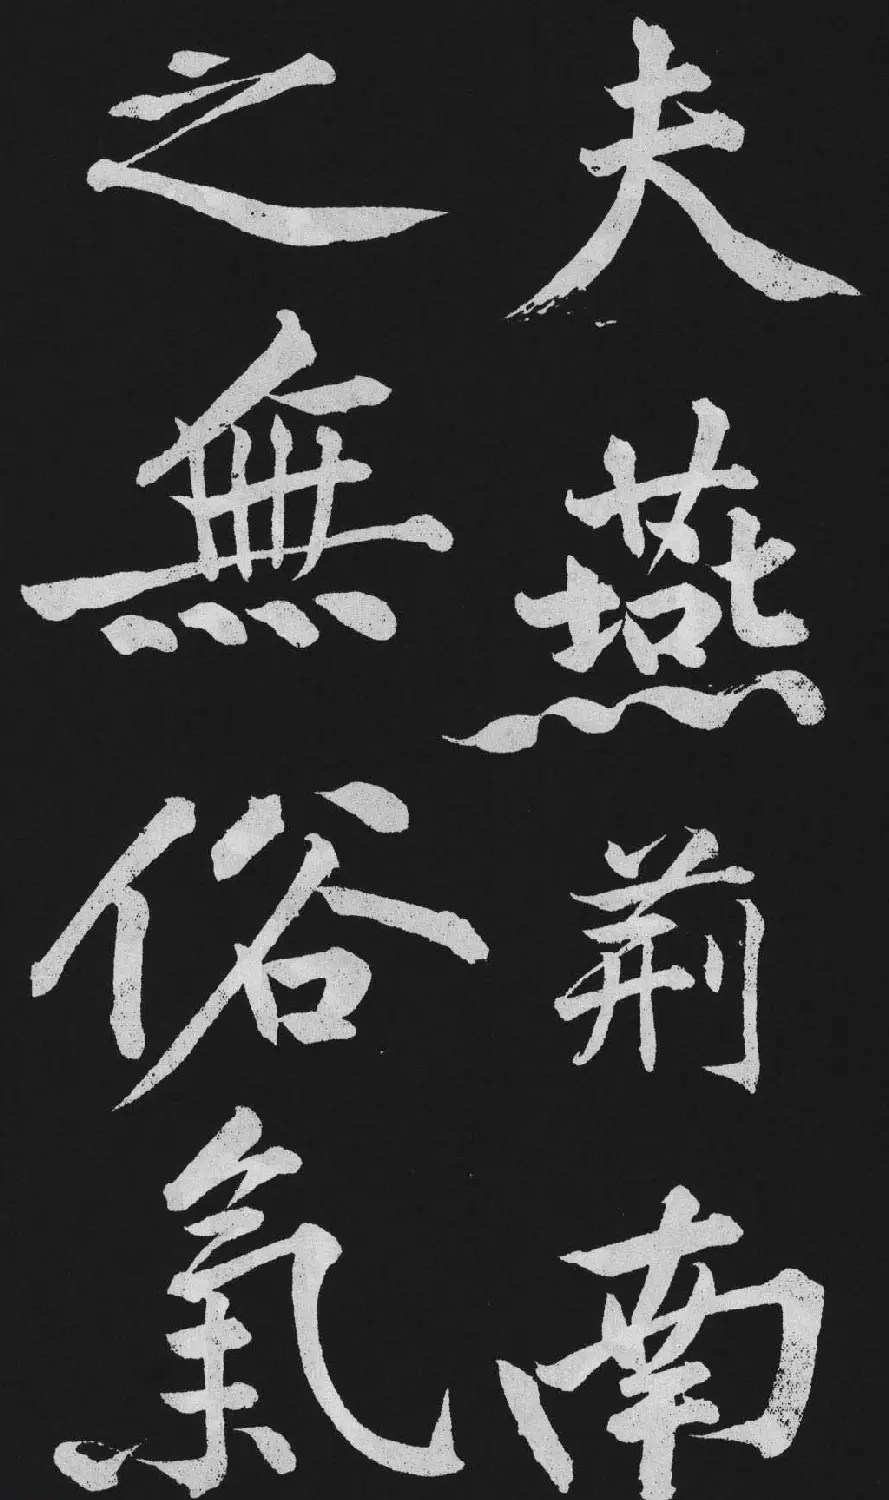 夫燕荊南
之無俗氣